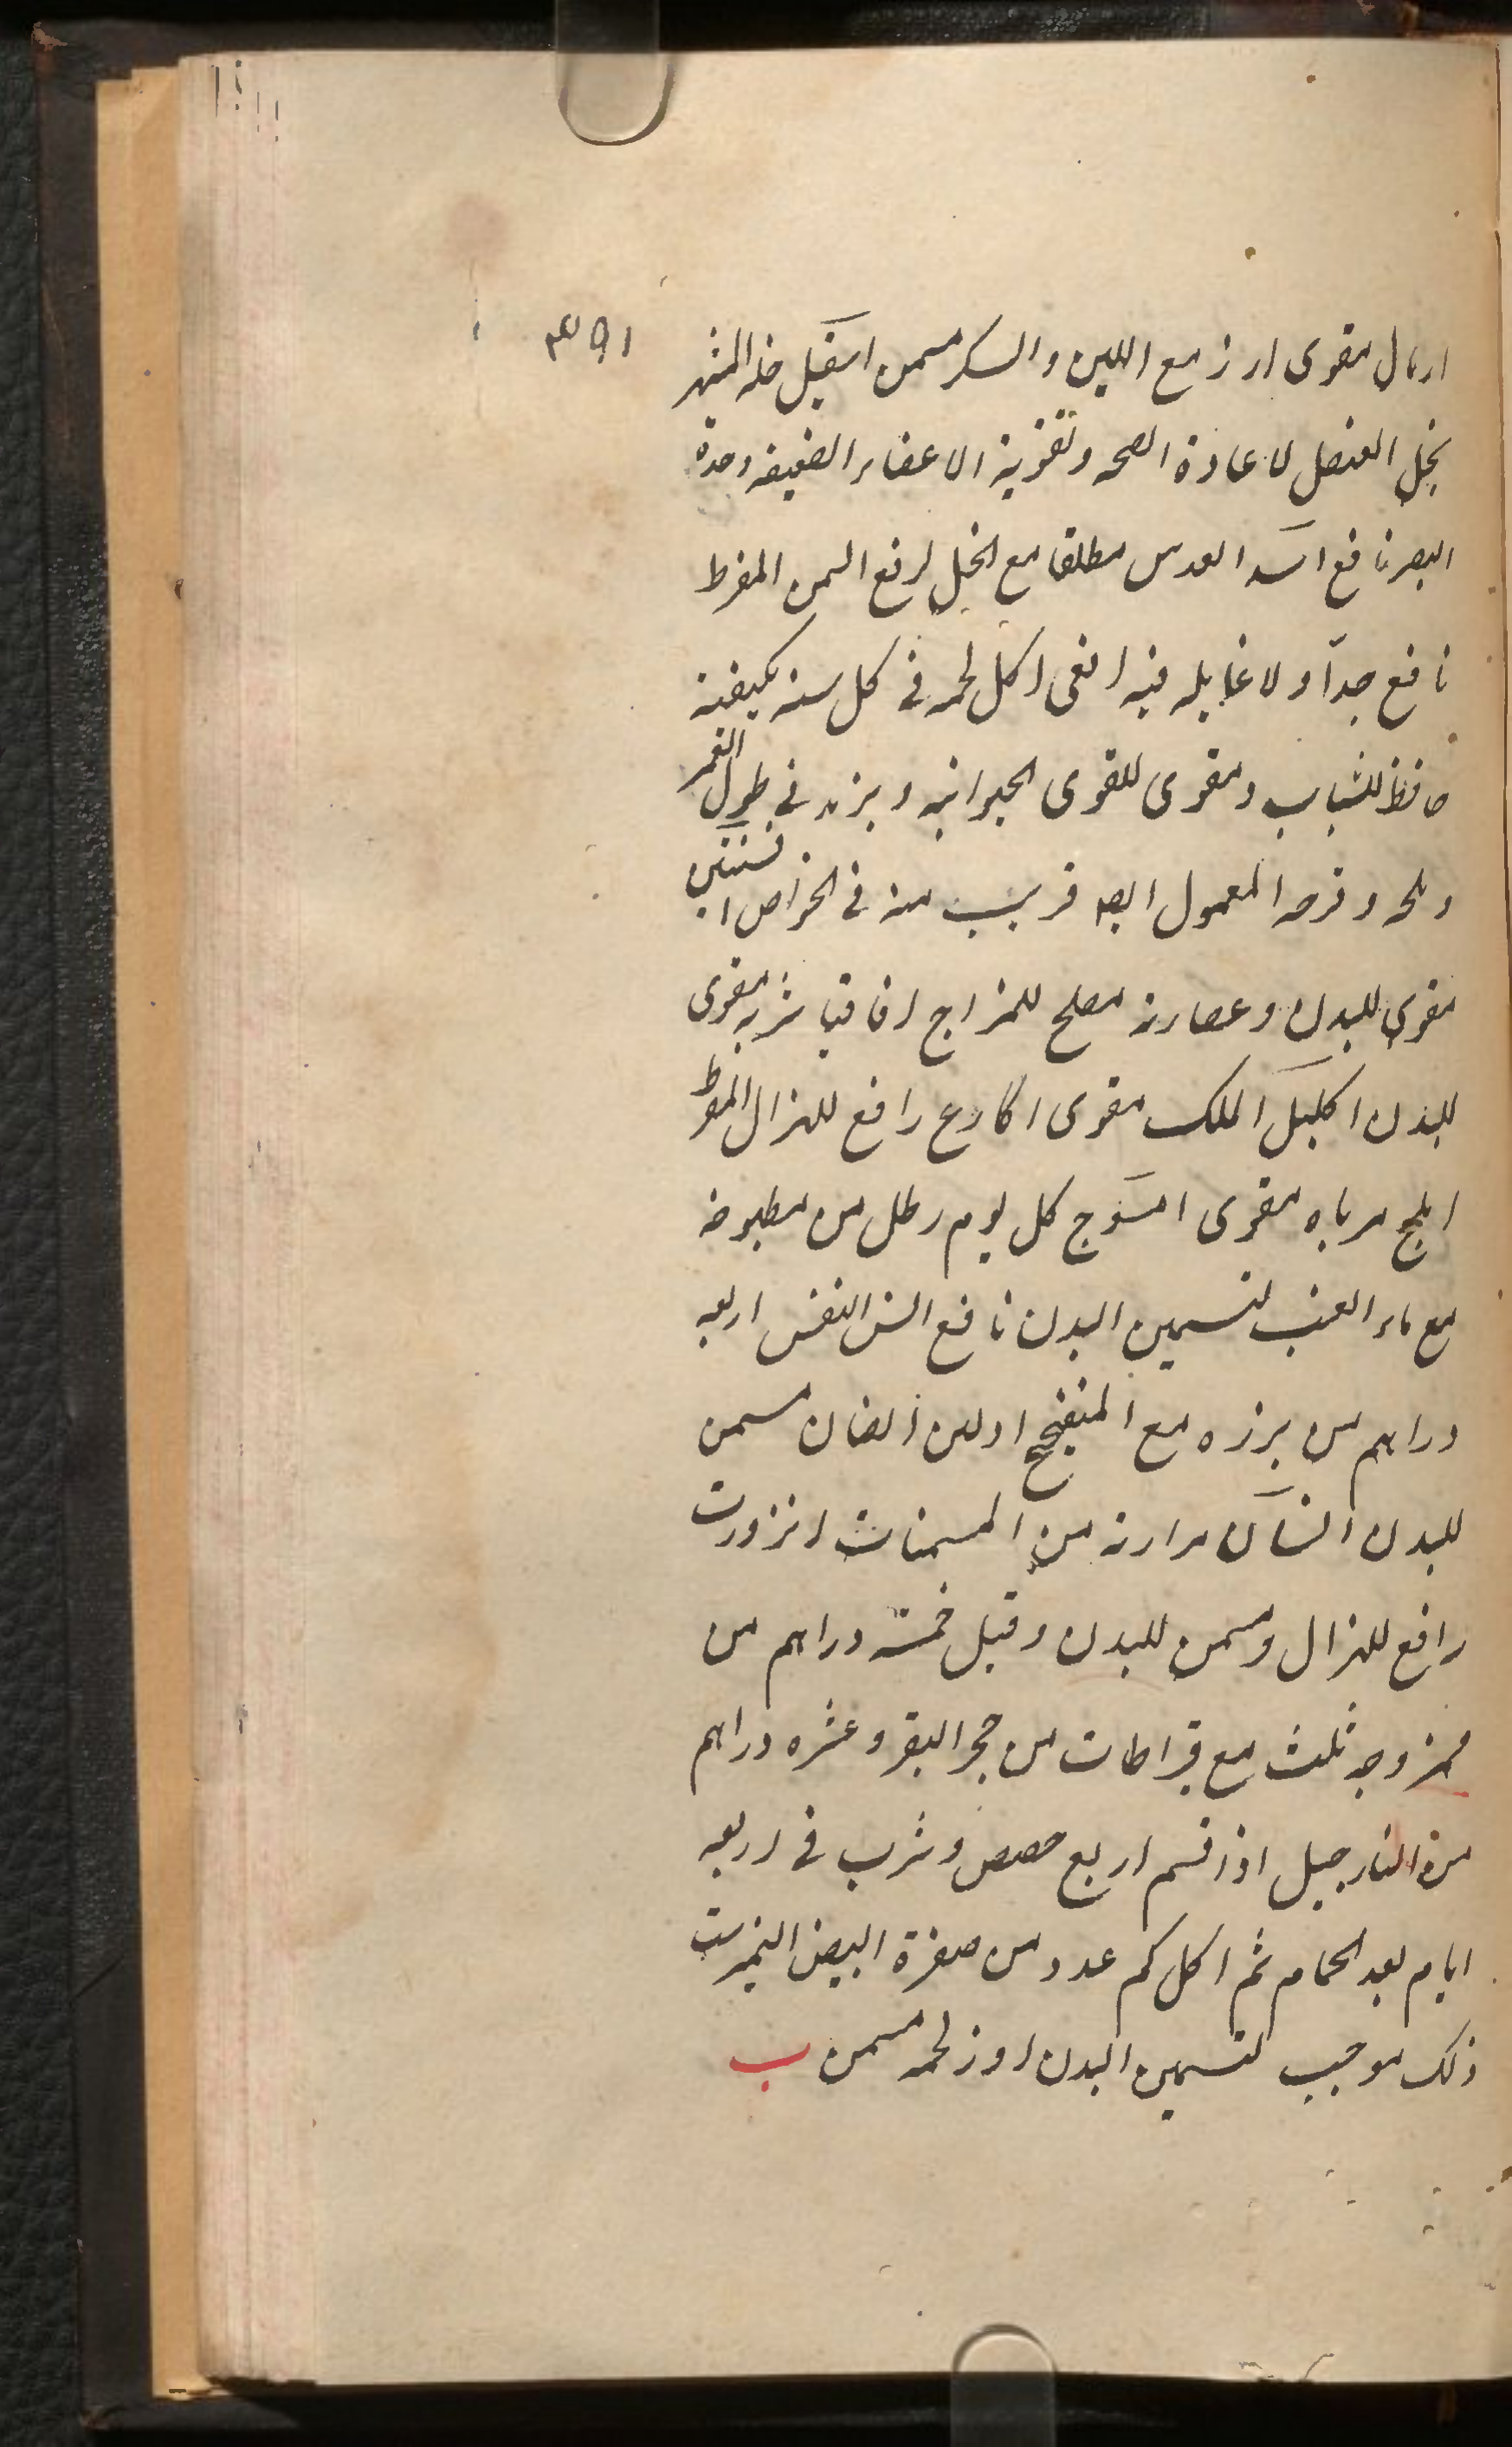 ۱۵۳
ارمال مقوى ارز مع اللبن والسكر مسمن اسقيل خله المشهر
بخل العنصل لاعادة الصحه وتقوية الاعضاء الضعيفه وحدة
البصر نافع اسد العدس مطلقا مع الخل لرفع السمن المفرط
نافع جداً ولا غايله فيه افعى اكل لحمه فى كل سنه بكيفية
حافظ للشباب ومقوى للقوى الحيوانيه ويزيد فى طول العمر
وملحه وقرصه المعمول ايضا قريب منه فى الخواص افسنتين
مقوى للبدن وعصارته مصلح للمزاج اقاقيا شربه مقوى
للبدن اكليل الملك مقوى اكارع رافع للهزال المفرط
املج مرباه مقوى امسوج كل يوم رطل من مطبوخه
مع ماء العنب لتسمين البدن نافع انس النفس اربعه
دراهم من بزره مع المنفج او لبن الضان مسمن
للبدن انسان مرارته من المسمنات انزروت
رافع للهزال ومسمن للبدن وقيل خمسة دراهم من
ممزوجه ثلث مع قيراطات من حجر البقر وعشره دراهم
من النارجيل اذا قسم اربع حصص وشرب فى اربعه
ايام بعد الحمام ثم اكل كم عدد من صفرة البيض النيمبرشت
ذلك موجب لتسمين البدن اوز لحمه مسمن ب